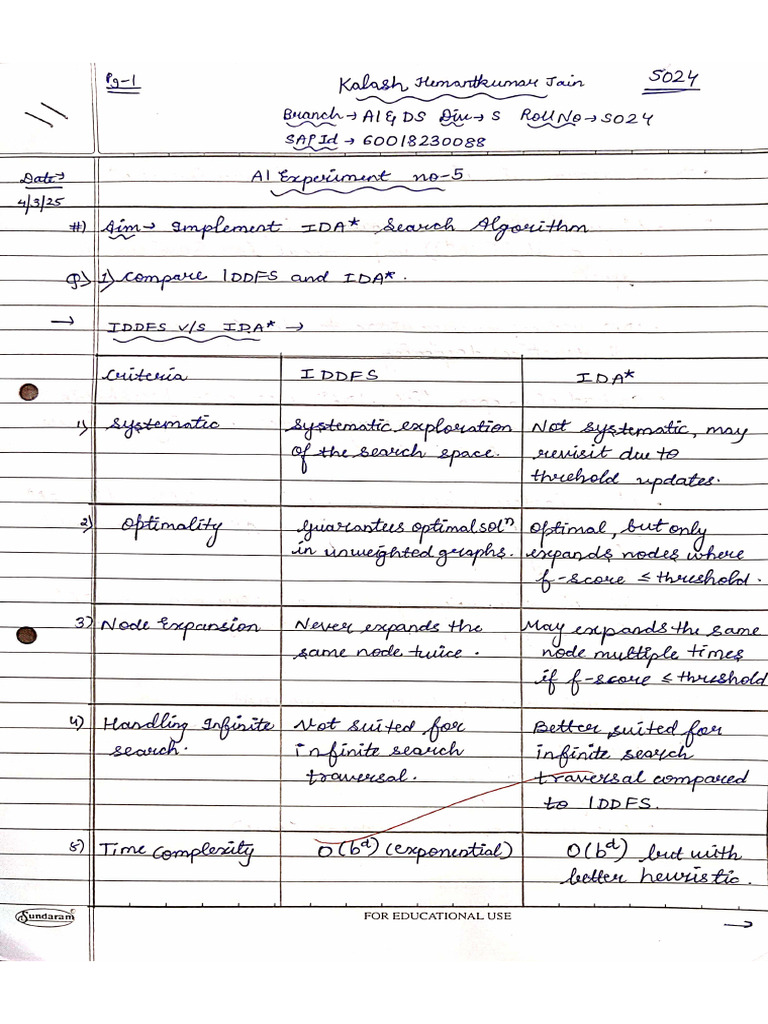 Pg-1
Kalash Hemantkumar Jain
S024
Branch → AI & DS Div → S Roll No → S024
SAP Id → 60018230088
Date →
4/3/25
AI Experiment no-5
#) Aim → Implement IDA* Search Algorithm
Q) 1) Compare IDDFS and IDA*.
→ IDDFS v/s IDA* →
Criteria
IDDFS
IDA*
1) Systematic
Systematic exploration
of the search space.
Not systematic, may
revisit due to
threhold updates.
2) Optimality
Guarantees optimal solⁿ
in unweighted graphs.
Optimal, but only
expands nodes where
f-score ≤ threshold.
3) Node Expansion
Never expands the
same node twice.
May expands the same
node multiple times
if f-score ≤ threshold
4) Handling Infinite
search.
Not suited for
infinite search
traversal.
Better suited for
infinite search
traversal compared
to IDDFS.
5) Time Complexity
O(b^d) (exponential)
O(b^d) but with
better heuristic.
Sundaram
FOR EDUCATIONAL USE
→